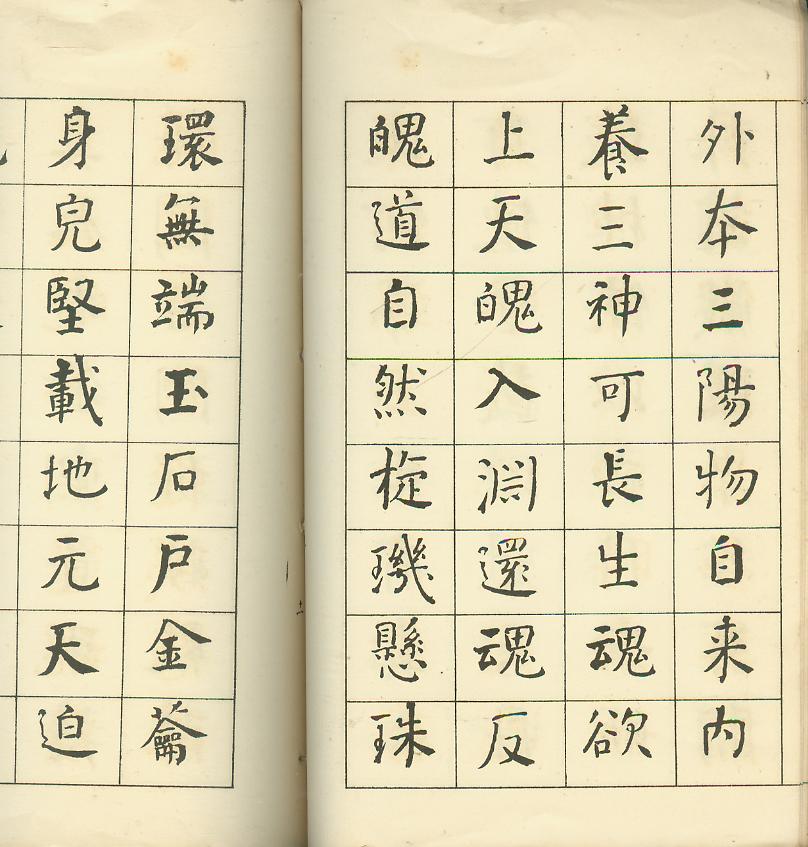 外本三陽物自来内
養三神可長生魂欲
上天魄入淵還魂反
魄道自然旋璣懸珠
環無端玉石戶金蘥
身皃堅載地元天迫